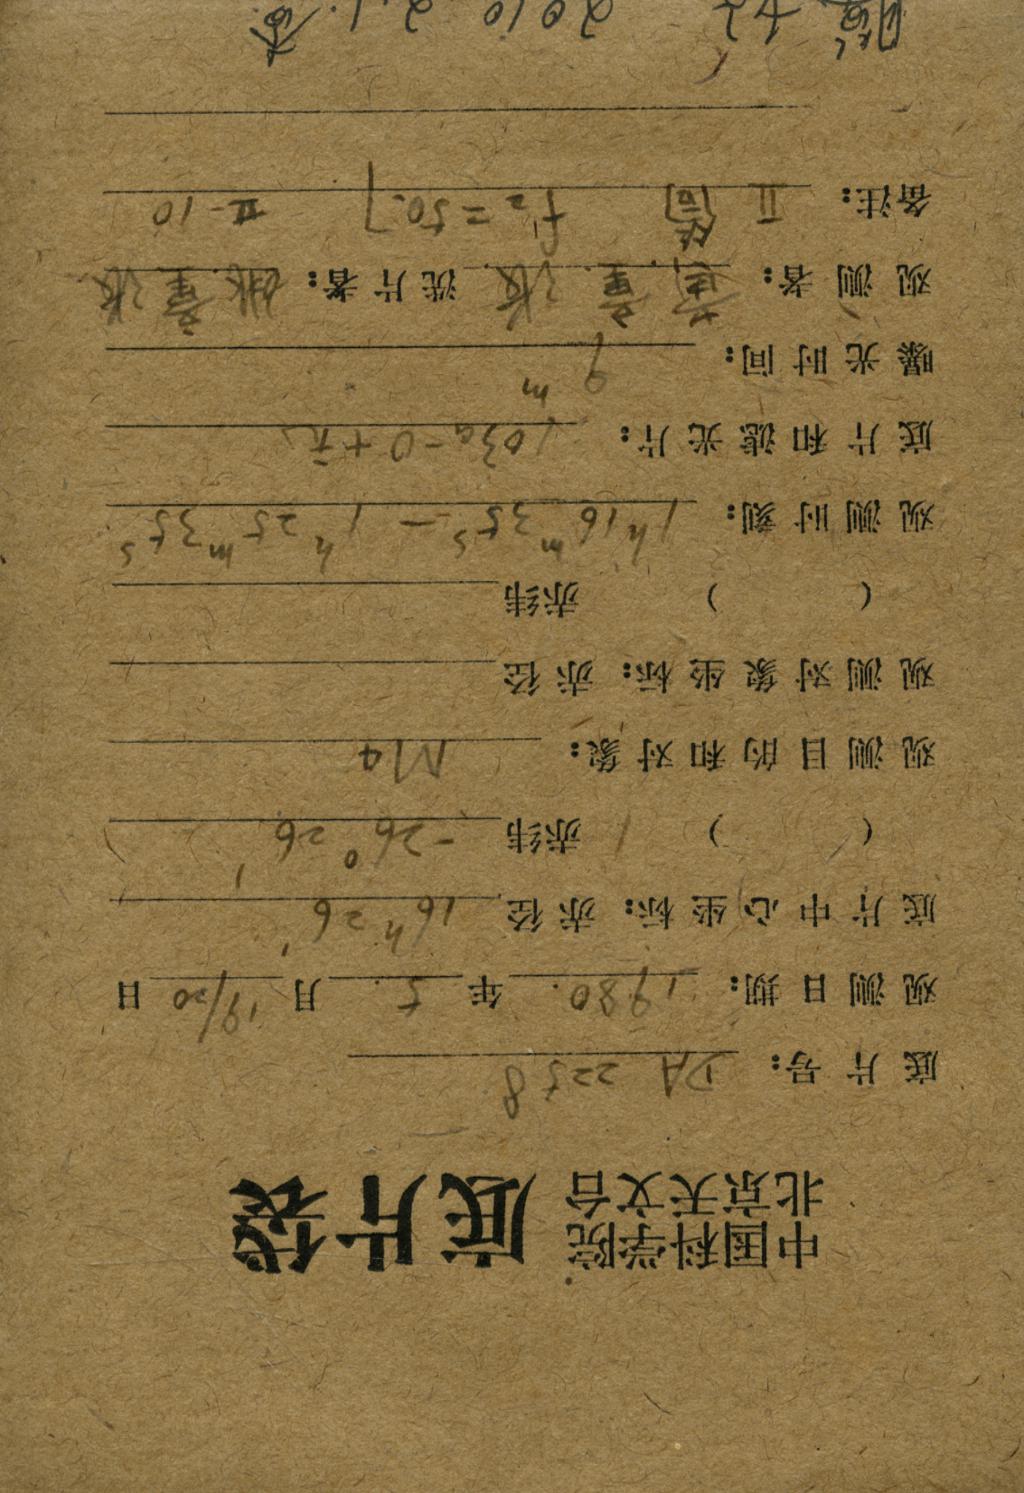 中国科学院
北京天文台 底片袋
底片号: DA 2258
观测日期: 1980 年 5 月 19/20 日
底片中心坐标: 赤径 16h 26'
( ) 赤纬 -26° 26'
观测目的和对象: M4
观测对象坐标: 赤径
( ) 赤纬
观测时刻: 1h16m35s — 1h25m35s
底片和滤光片: 103a-O+无
曝光时间: 9m
观测者: 童张 洗片者: 童张
备注: II 筒 f2=50.7 II-10
2010.2.1.